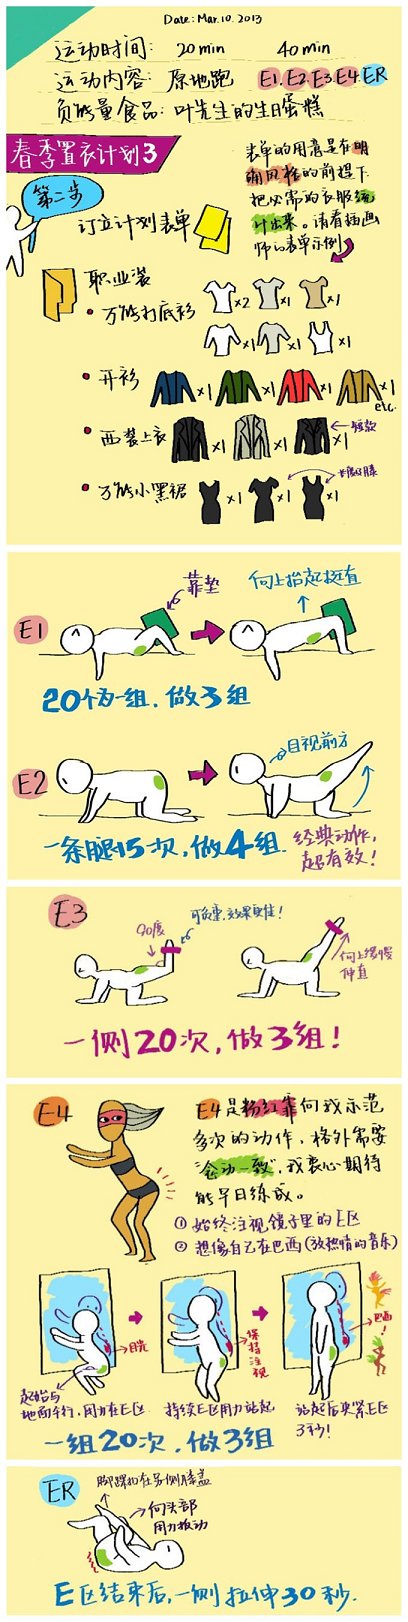 Date: Mar. 10. 2013
运动时间: 20min 40min
运动内容: 原地跑 E1. E2. E3. E4. ER
负能量食品: 叶先生的生日蛋糕
春季置衣计划3
第二步
订立计划表单
表单的用意是在明
确风格的前提下
把必需的衣服统
计出来。请看插画
师的表单示例
职业装
• 万能打底衫
×2 ×1 ×1
×1 ×1 ×1
• 开衫
×1 ×1 ×1 ×1
etc.
• 西装上衣
×1 ×1 ×1
短款
• 万能小黑裙
×1 ×1 ×1
E1
靠垫
向上抬起挺直
20个为一组, 做3组
E2
目视前方
一条腿15次, 做4组.
经典动作,
超有效!
E3
90度
可负重, 效果更佳!
向上缓慢
伸直
一侧20次, 做3组!
E4
E4是粉红靠向我示范
多次的动作, 格外需要
"念动一致", 我衷心期待
能早日练成。
① 始终注视镜子里的E区
② 想像自己在巴西(放热情的音乐)
目光
保持注视
巴西!
起始与
地面平行, 用力在E区
持续E区用力站起
站起后夹紧E区
3秒!
一组20次, 做3组
ER
脚踝扣在另侧膝盖
向头部
用力扳动
E区结束后, 一侧拉伸30秒.